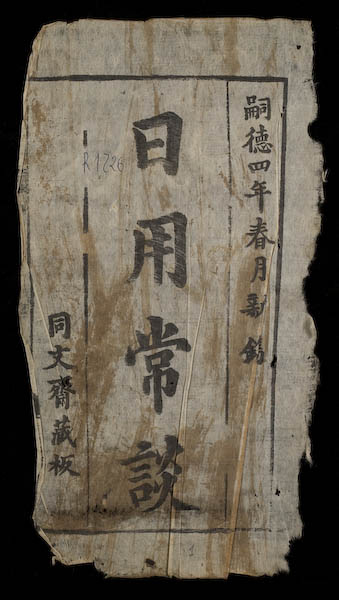 嗣德四年春月新鐫
日用常談
同文齋藏板
R1726